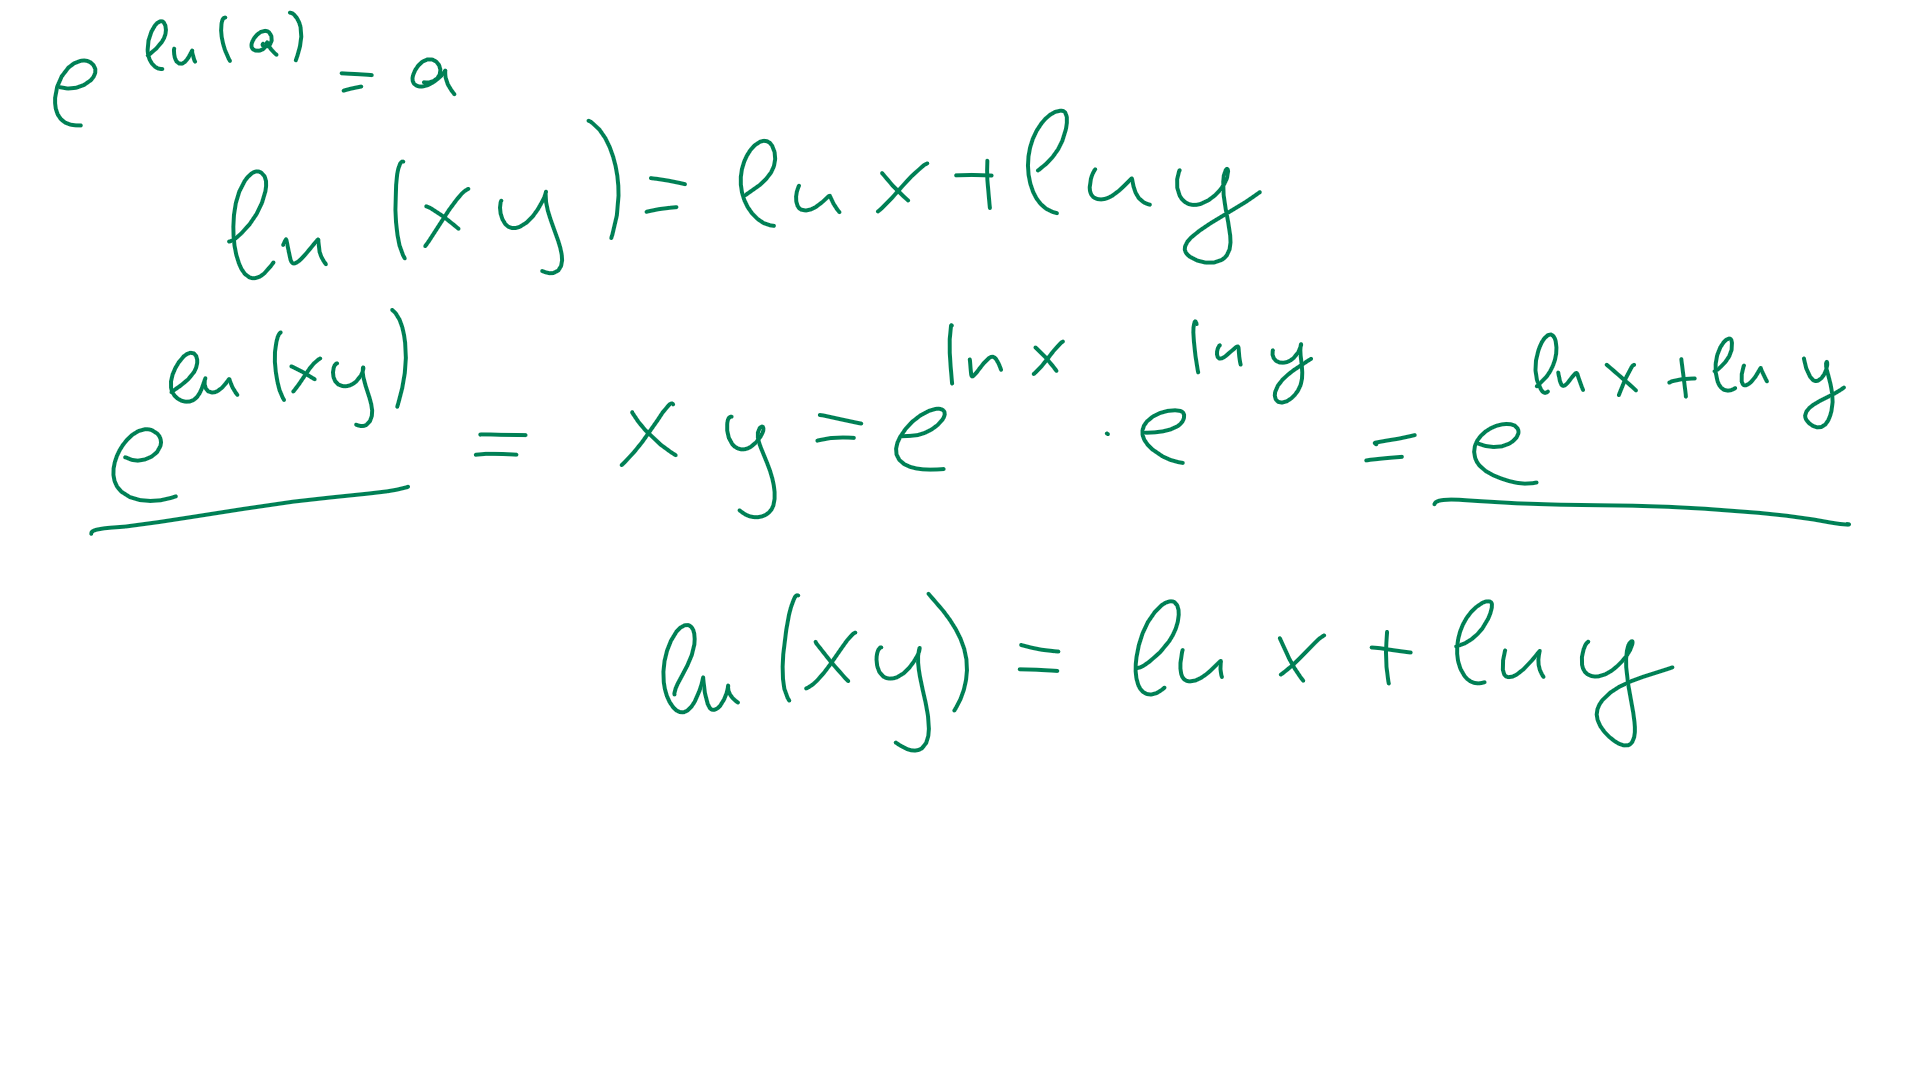 e^{ln(a)} = a
ln (xy) = ln x + ln y
e^{ln(xy)} = xy = e^{ln x} · e^{ln y} = e^{ln x + ln y}
ln (xy) = ln x + ln y